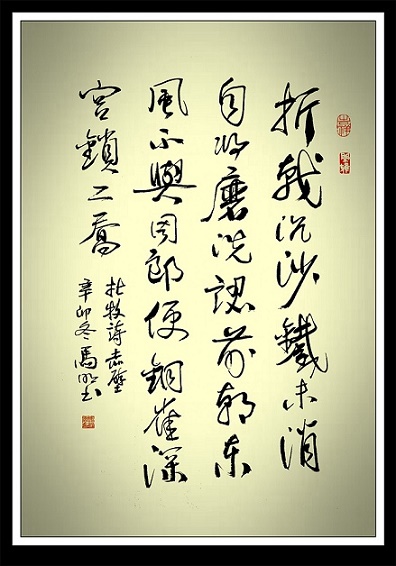 折戟沉沙鐵未消
自將磨洗認前朝東
風不與周郎便銅雀深
宮鎖二喬
杜牧詩赤壁
辛卯冬馬书